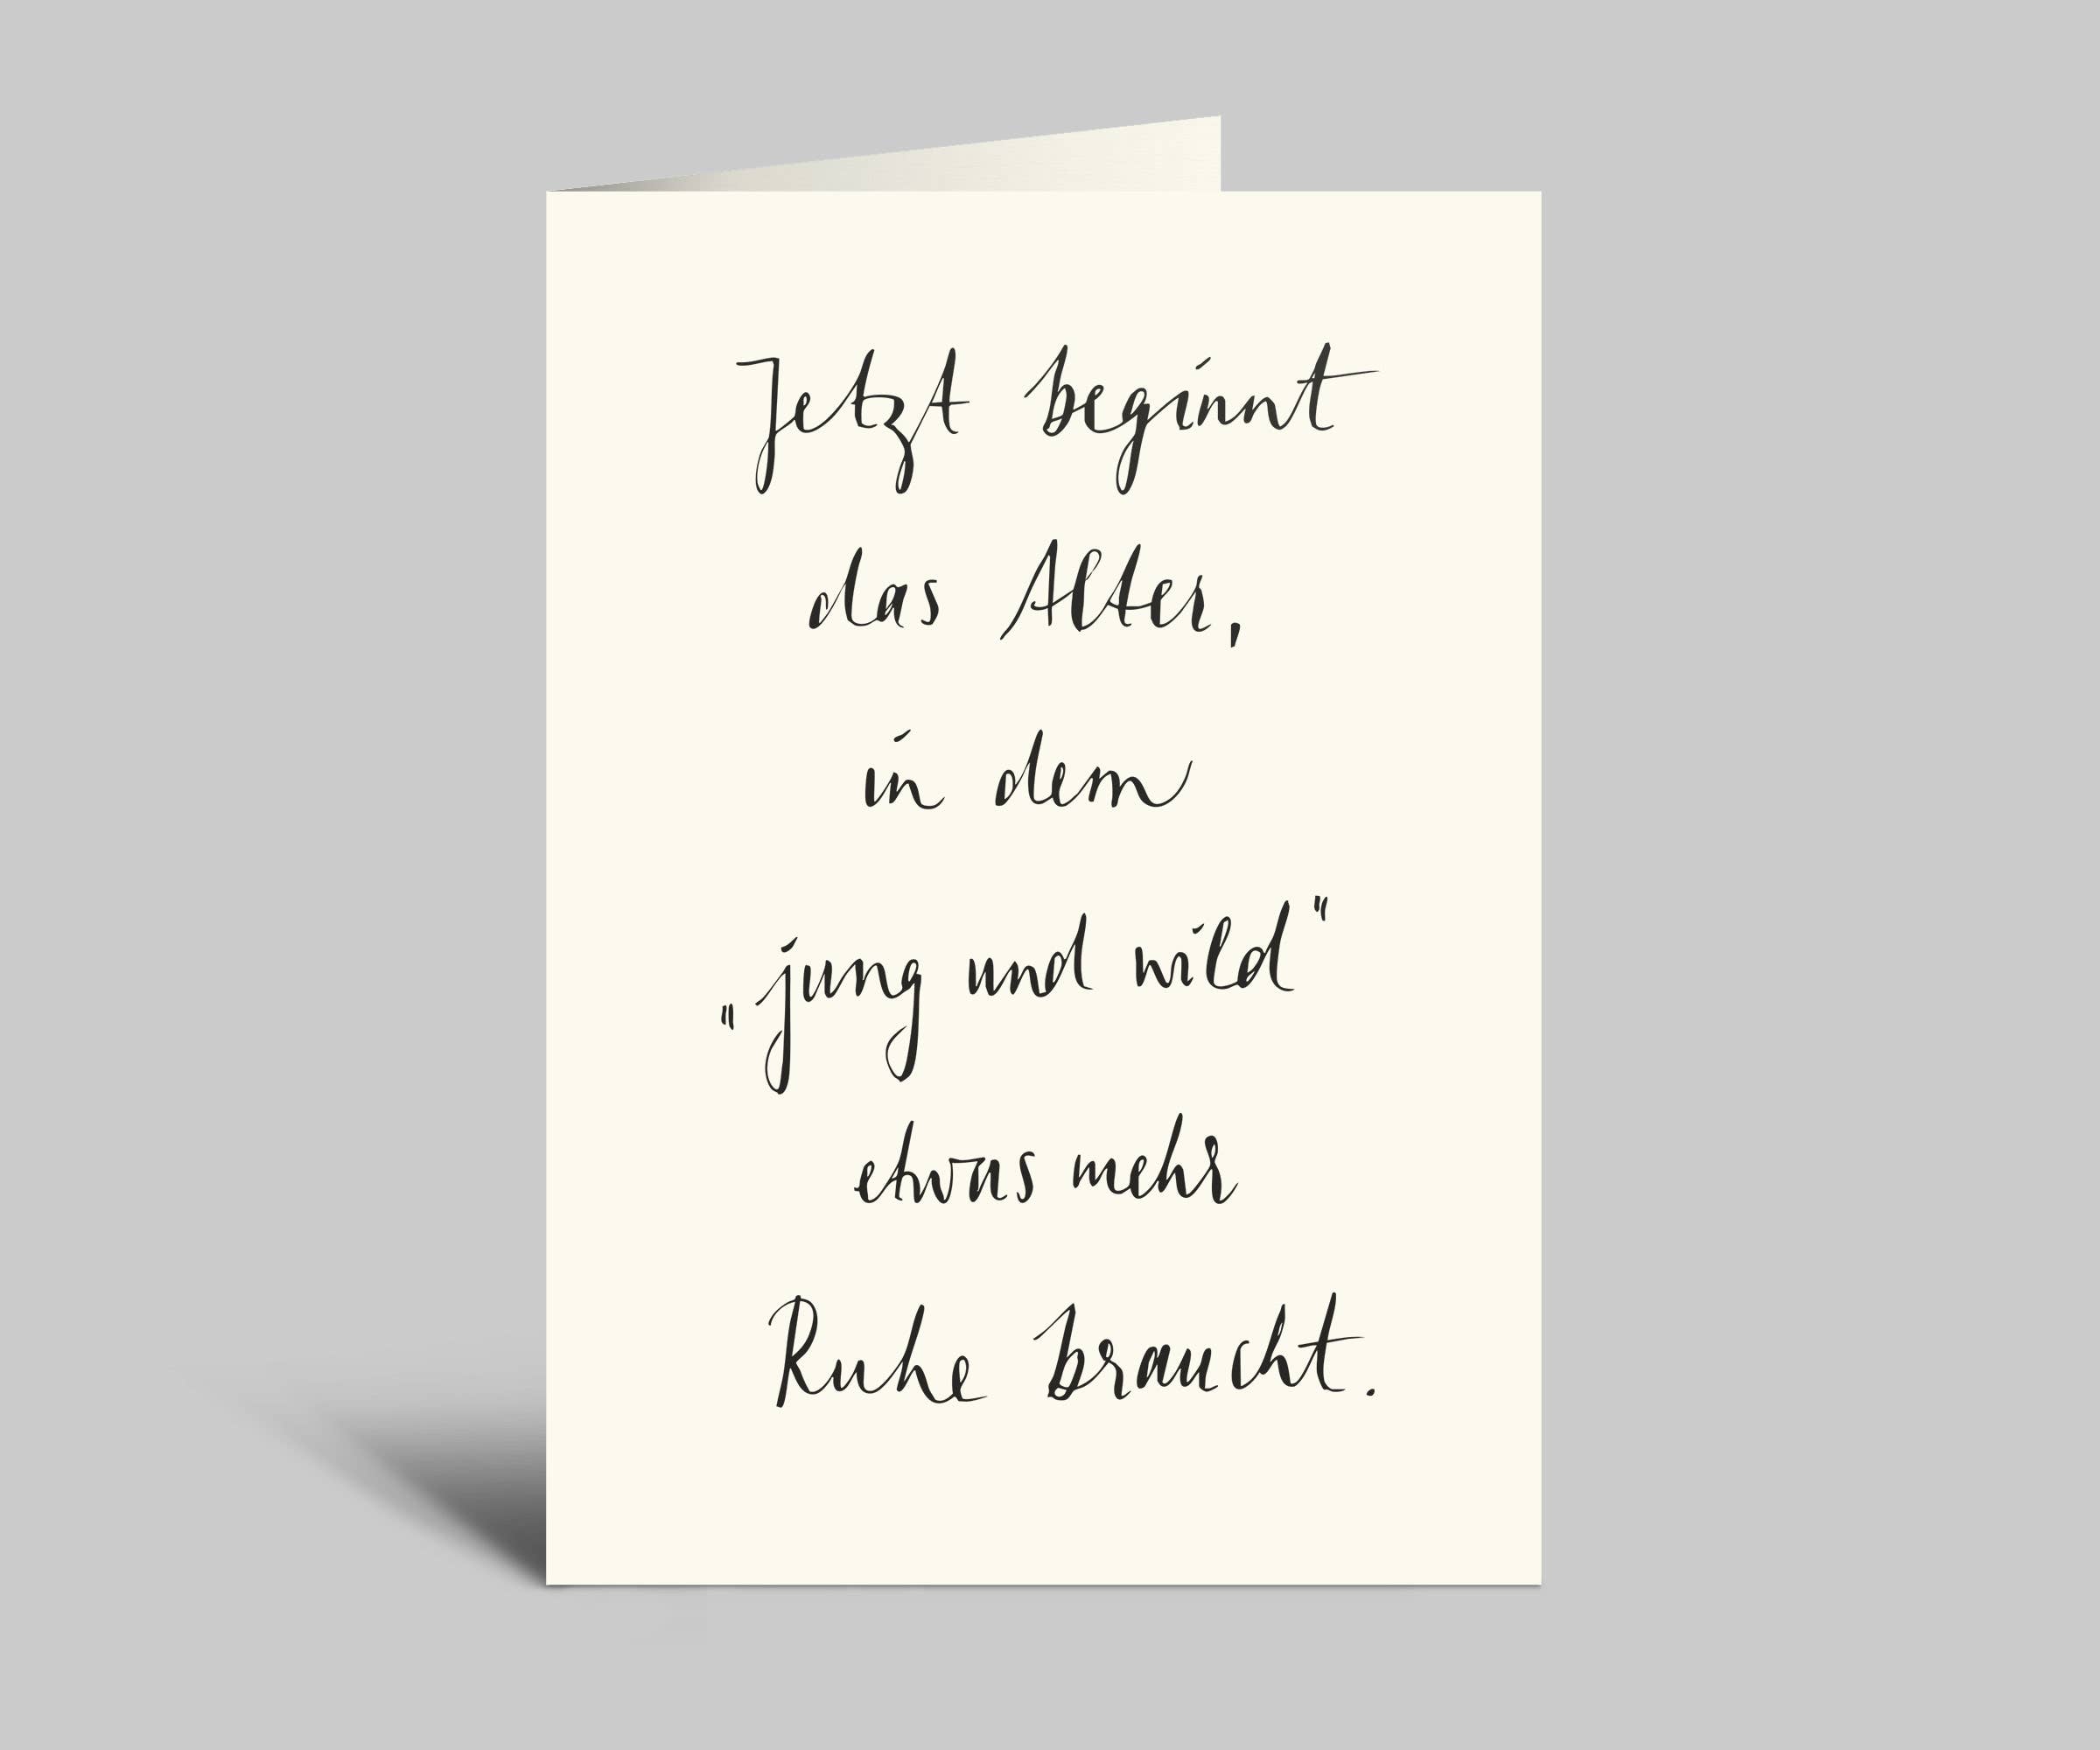 Jetzt beginnt
das Alter,
in dem
"jung und wild"
etwas mehr
Ruhe braucht.